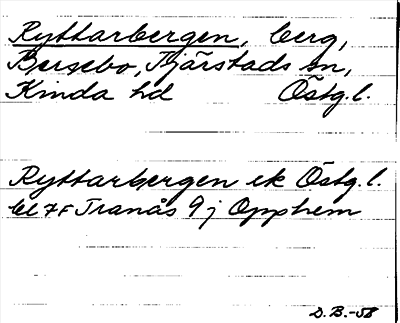 Ryttarbergen, berg,
Bersebo, Tjärstads sn,
Kinda hd Östg.l.
Ryttarbergen ek Östg.l.
bl 7F Tranås 9 j Opphem
D.B.-58